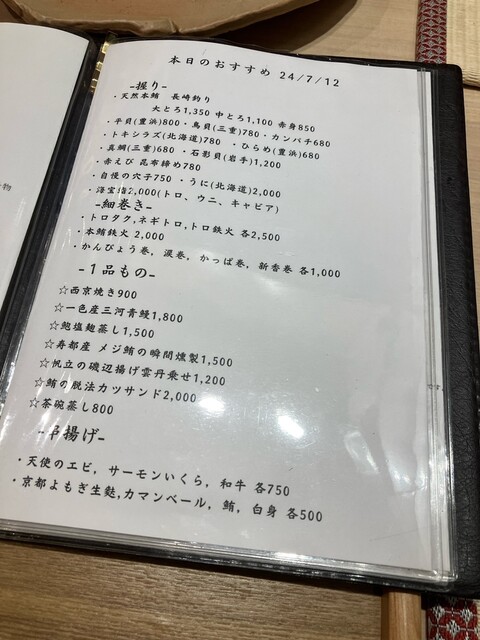 本日のおすすめ 24/7/12
-握り-
・天然本鮪 長崎釣り
大とろ1,350 中とろ1,100 赤身850
・平貝(豊浜)800・鳥貝(三重)780・カンパチ680
・トキシラズ(北海道)780 ・ひらめ(豊浜)680
・真鯛(三重)680・石影貝(岩手)1,200
・赤えび 昆布締め780
・自慢の穴子750 ・うに(北海道)2,000
・海宝詣2,000(トロ、ウニ、キャビア)
-細巻き-
・トロタク,ネギトロ,トロ鉄火 各2,500
・本鮪鉄火 2,000
・かんぴょう巻,涙巻,かっぱ巻,新香巻 各1,000
-1品もの-
☆西京焼き900
☆一色産三河青鰻1,800
☆鮑塩麹蒸し1,500
☆寿都産 メジ鮪の瞬間燻製1,500
☆帆立の磯辺揚げ雲丹乗せ1,200
☆鮪の脱法カツサンド2,000
☆茶碗蒸し800
-串揚げ-
・天使のエビ, サーモンいくら, 和牛 各750
・京都よもぎ生麩,カマンベール, 鮪, 白身 各500
物